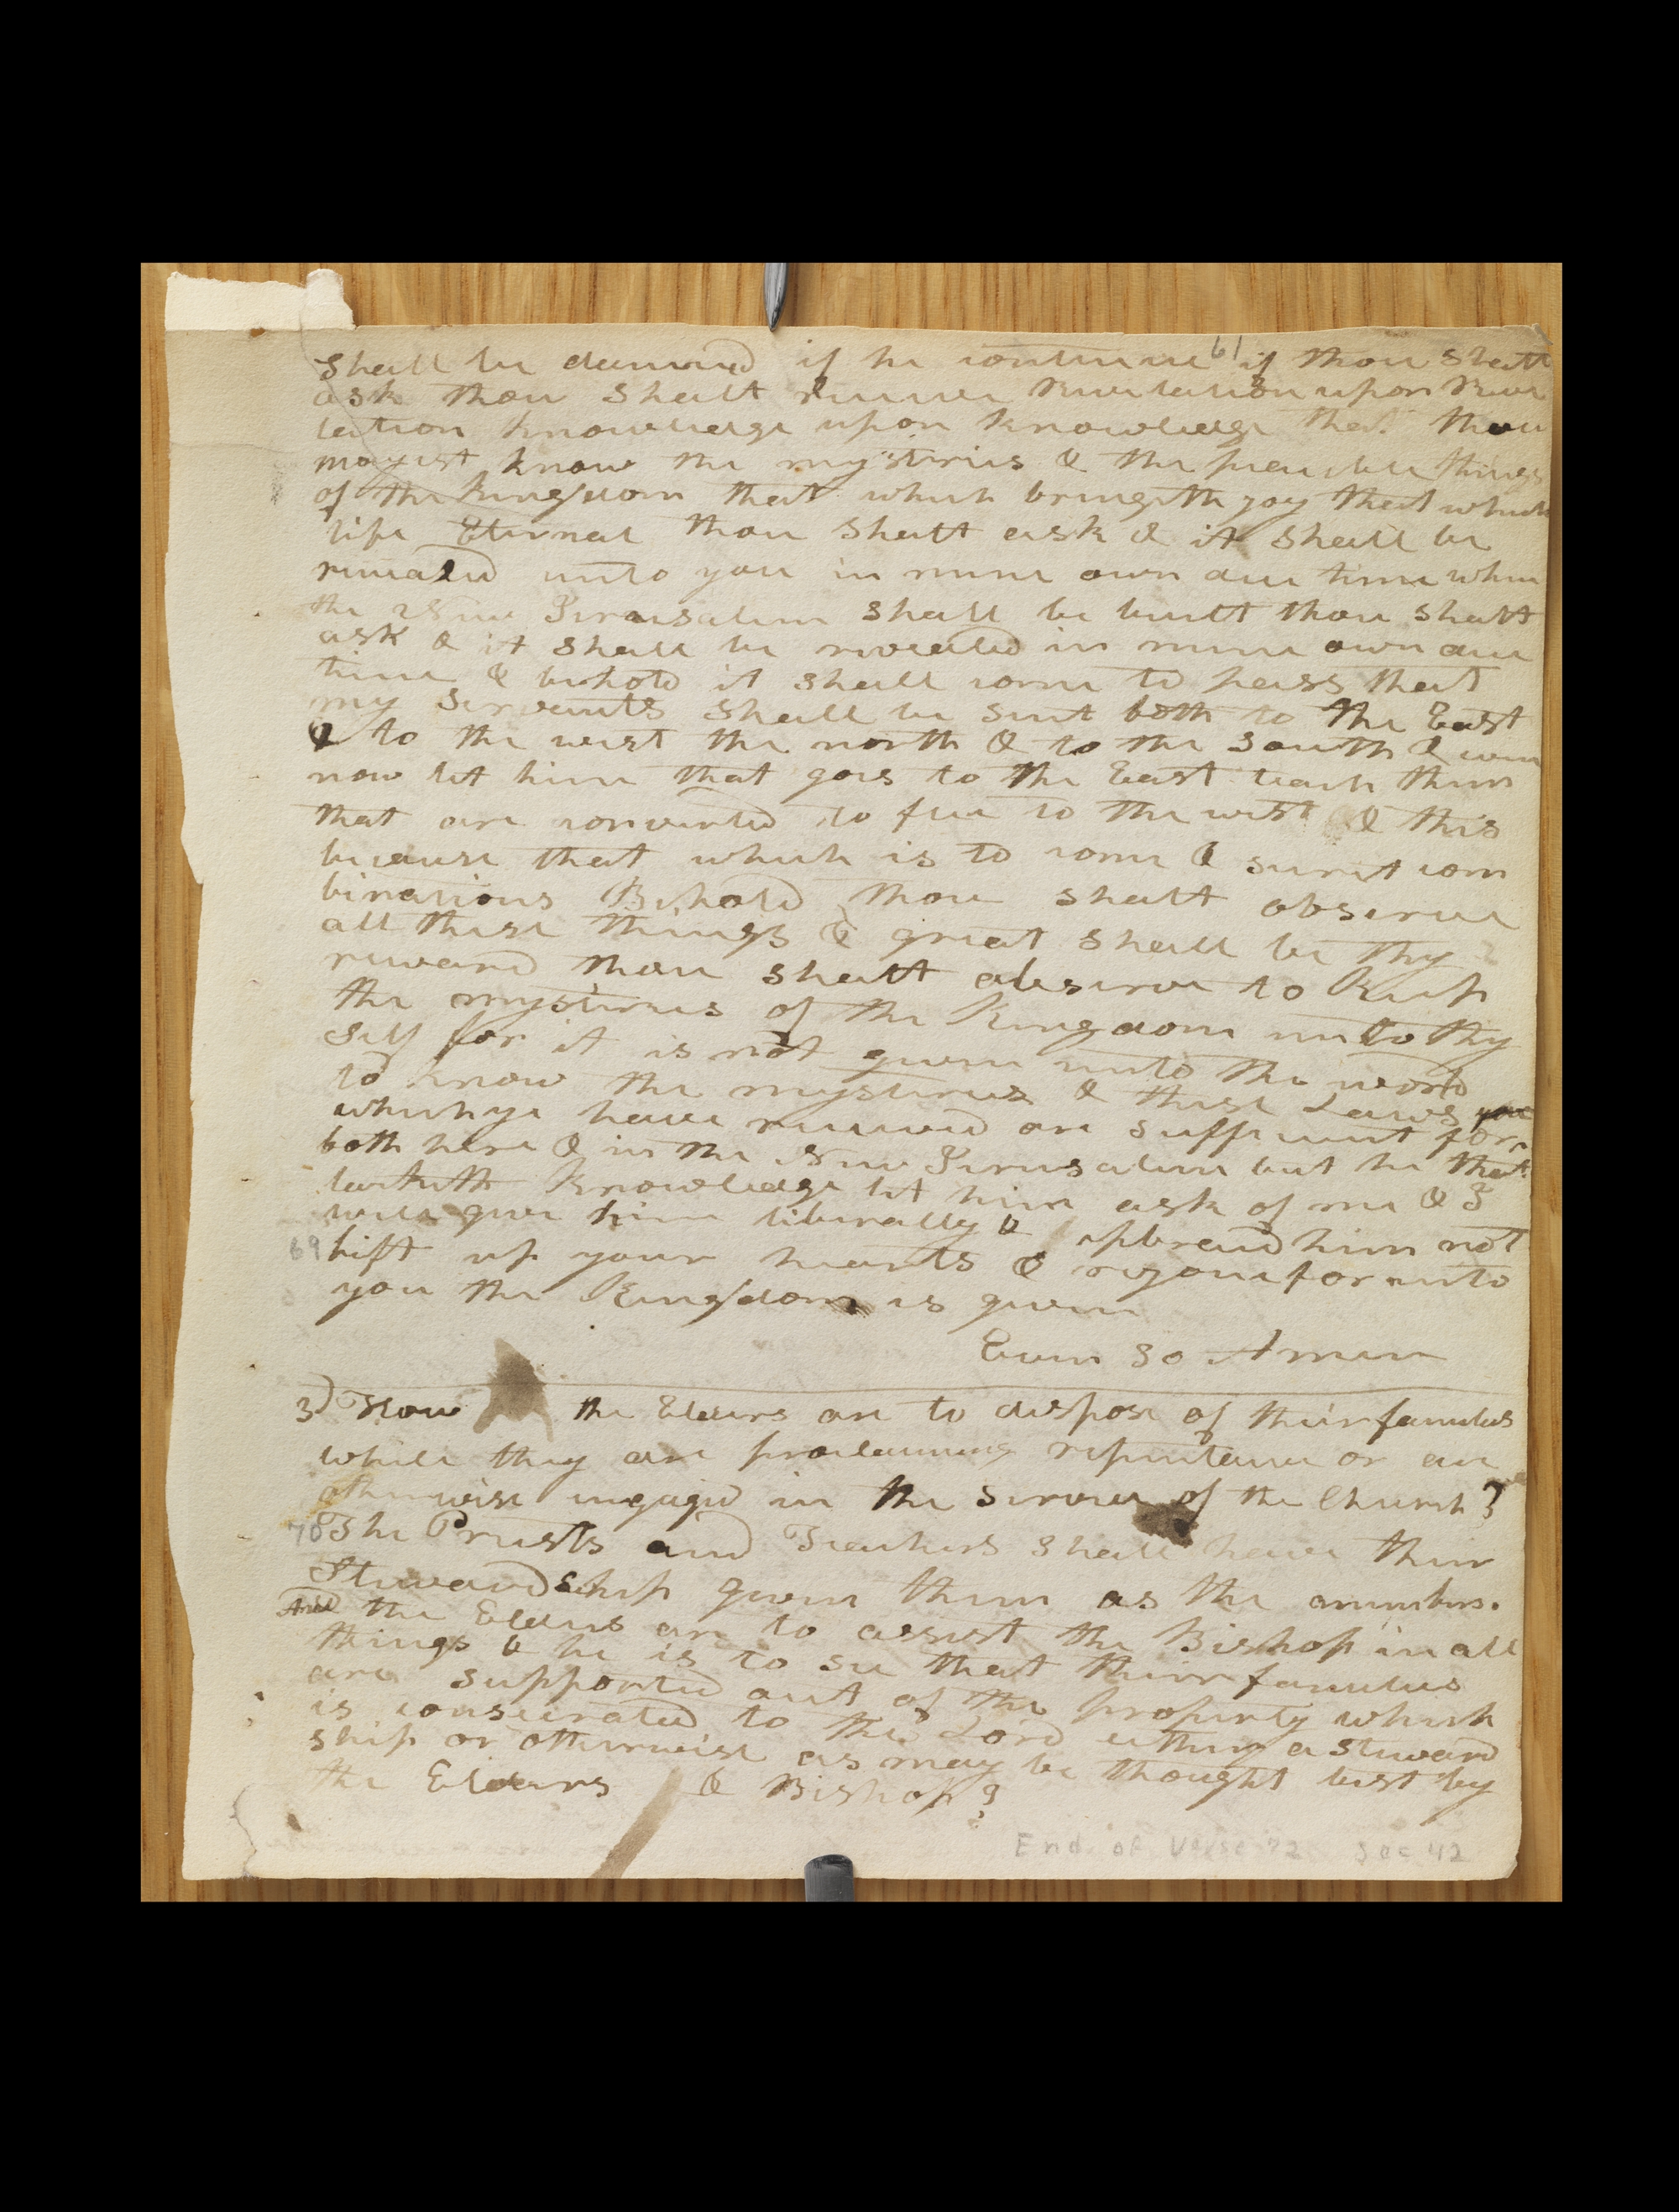 shall be damned if he continue 61 if thou shalt
ask thou shalt receive Revelation upon Reve
lation knowledge upon knowledge that thou
mayest know the mysteries & the peacible things
of the Kingdom that which bringeth joy that which
life Eternal thou shalt ask & it shall be
revealed unto you in mine own due time when
the New Jerusalem shall be built thou shalt
ask & it shall be revealed in mine own due
time & behold it shall come to pass that
my servants shall be sent both to the East
& to the west the north & to the south & even
now let him that goes to the East teach them
that are converted to flee to the west & this
because that which is to come & secret com
binations Behold thou shalt observe
all these things & great shall be thy
reward thou shalt observe to Keep
the mysteries of the Kingdom unto thy
self for it is not given unto the world
to know the mysteries & these Laws
which ye have received are sufficient for
both here & in the New Jerusalem but he that
lacketh Knowledge let him ask of me & I
will give him liberally & upbraid him not
69 lift up your hearts & rejoice for unto
you the Kingdom is given
Even so Amen
3) How the Elders are to dispose of their families
while they are proclaiming repentance or are
otherwise engaged in the service of the Church?
70 The Priests and Teachers shall have their
Stewardship given them as the members.
And the Elders are to assist the Bishop in all
things & he is to see that their families
are supported out of the property which
is consecrated to the Lord either a steward
ship or otherwise as may be thought best by
the Elders & Bishop?
End of Verse 72 Sec 42